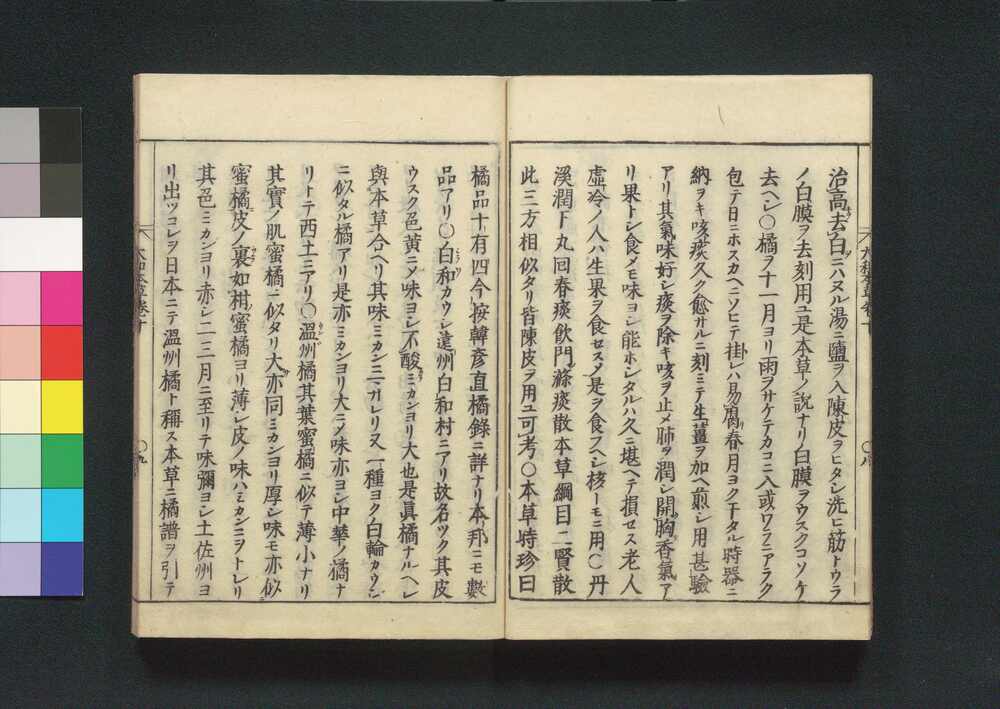 治高去白ニハヌル湯ニ鹽ヲ入陳皮ヲヒタシ洗ヒ筋トウラ
ノ白膜ヲ去刻用ユ是本草ノ説ナリノ白膜ヲウスクコソケ
去ヘシ〇橘ヲ十一月ヨリ雨ヲサケテカコニ入或ワラニアラク
包テ日ニホスカヘニソヒテ掛レハ易腐春月ヨク干タル時器ニ
納ヲキ咳痰久ク愈サルニ刻ミテ生薑ヲ加ヘ煎シ用甚驗
アリ其氣味好シ痰ヲ除キ咳ヲ止メ肺ヲ潤シ開胸香氣ア
リ果トシ食メモ味ヨシ能ホシタルハ久ニ堪ヘテ損セス老人
虛冷ノ人ハ生果ヲ食セスメ是ヲ食フヘシ核トーモニ用〇丹
溪潤下丸回春痰飲門滌痰散本草綱目二賢散
此三方相似タリ皆陳皮ヲ用ユ可考〇本草時珍曰
橘品十有四今按韓彥直橘錄ニ詳ナリ本邦ニモ數
品アリ〇白和カウシ遠州白和村ニアリ故名ツク其皮
ウスク色黄ニメ味ヨシ不酸ミカンヨリ大也是眞橘ナルヘシ
與本草合ヘリ其味ミカンニマサレリ又一種ヨク白輪カウシ
ニ似タル橘アリ是亦ミカンヨリ大ニメ味亦ヨシ中華ノ橘ナ
リトテ西土ニアリ〇溫州橘其葉蜜橘ニ似テ薄小ナリ
其實ノ肌蜜橘ニ似タリ大亦同ミカンヨリ厚シ味モ亦似
蜜橘皮ノ裏如柑蜜橘ヨリ薄シ皮ノ味ハミカンニヲトレリ
其色ミカンヨリ赤シ二三月ニ至リテ味彌ヨシ土佐州ヨ
リ出ツコレヲ日本ニテ溫州橘ト稱ス本草ニ橘譜ヲ引テ